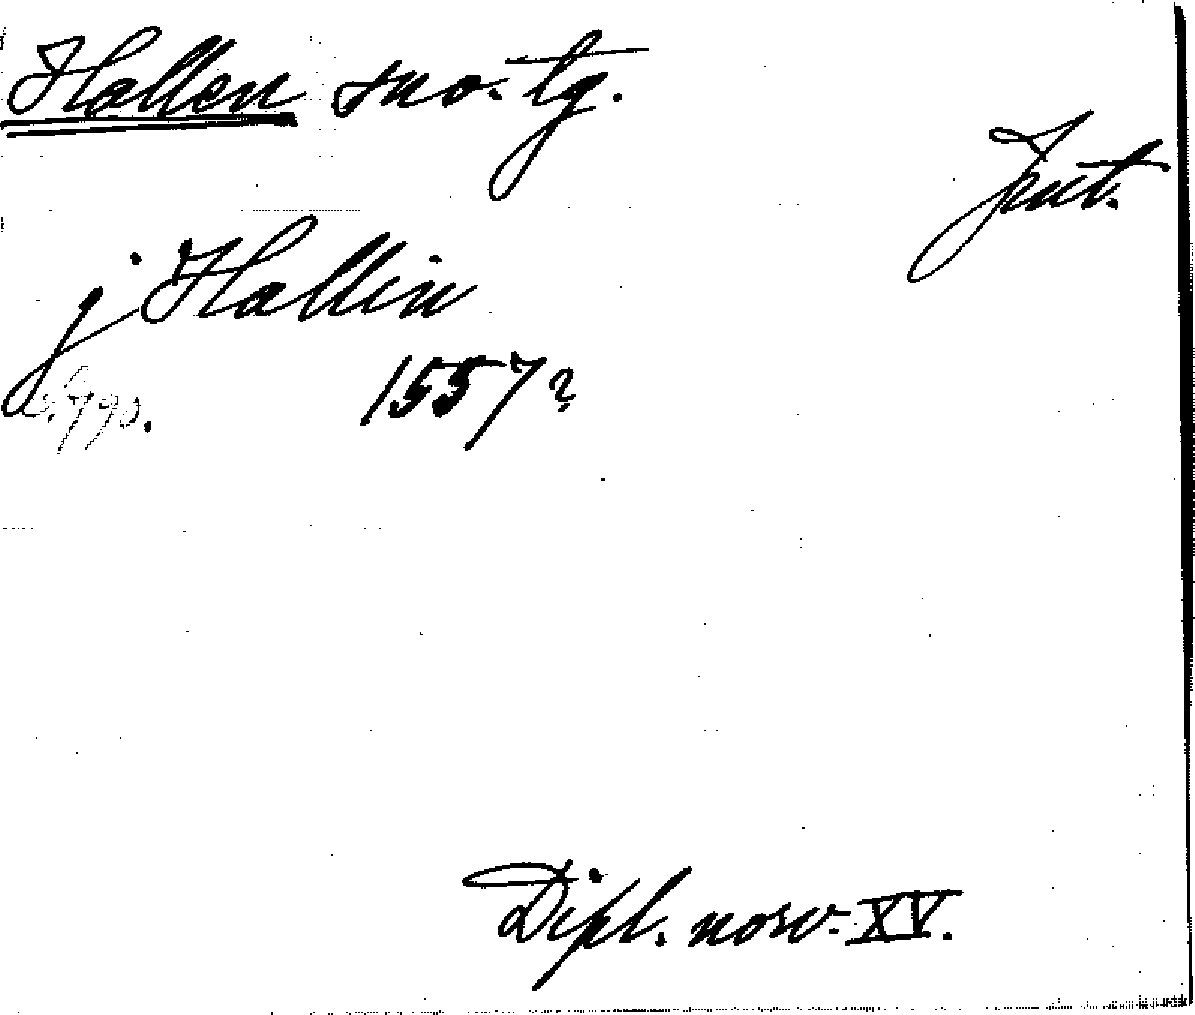 Hallen sn o. tg.
Jmt.
j Hallin
s. 790.
1557?
Dipl. norv. XV.